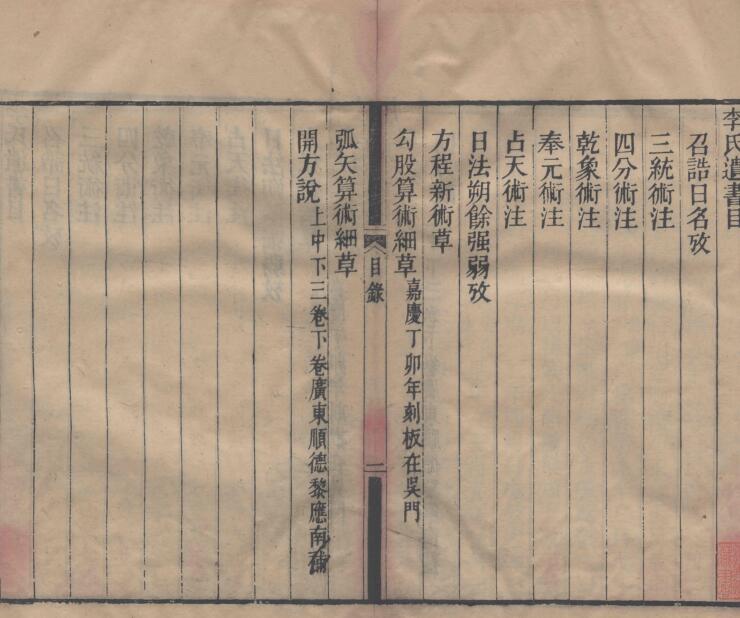 李氏遺書目
召誥日名攷
三統術注
四分術注
乾象術注
奉元術注
占天術注
日法朔餘强弱攷
方程新術草
勾股算術細草 嘉慶丁卯年刻板在吳門
目錄 二
弧矢算術細草
開方說 上中下三卷下卷廣東順德黎應南補